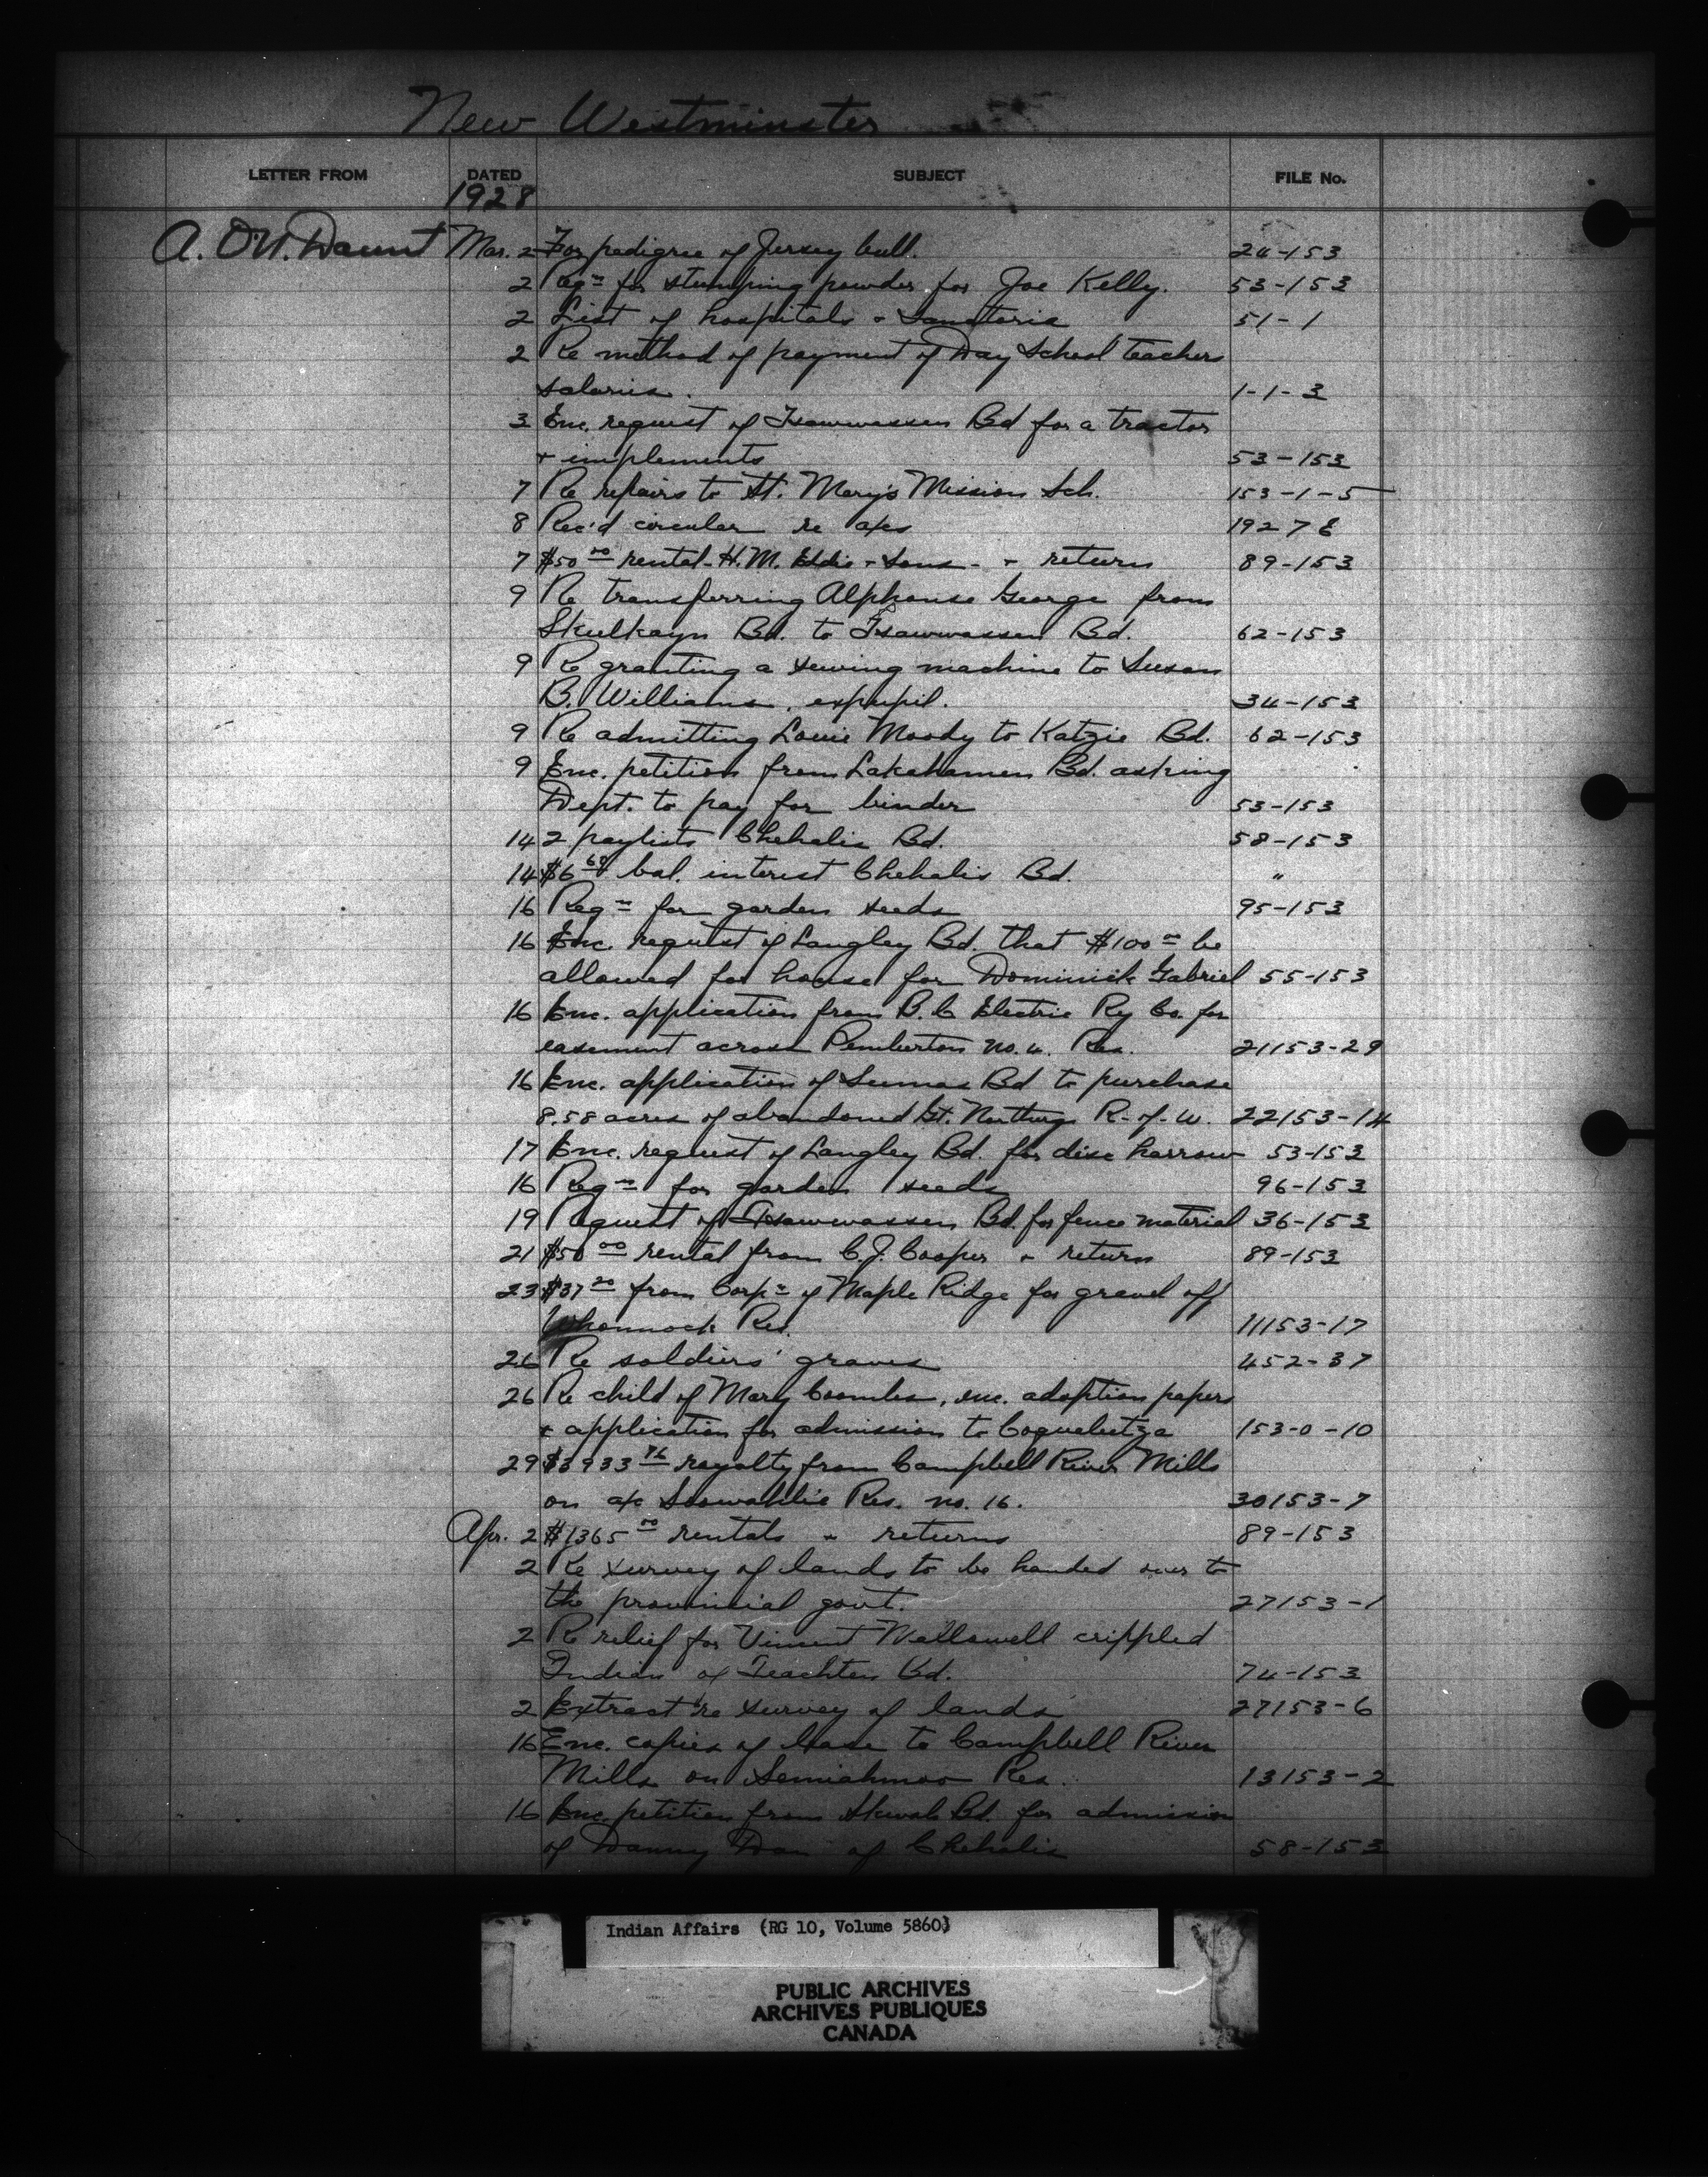 New Westminster
LETTER FROM DATED SUBJECT FILE No.
1928
A. O'N. Daunt Mar. 2 For pedigree of Jersey bull. 24-153
2 Reqn for stumping powder for Joe Kelly. 53-153
2 List of hospitals + Sanatoria 51-1
2 Re method of payment of Day School teachers
salaries. 1-1-3
3 Enc. request of Tsawwassen Bd for a tractor
+ implements 53-153
7 Re repairs to St. Mary's Mission Sch. 153-1-5
8 Rec'd circular re a/cs 1927 E
7 $50 00 rental - H.M. Eddie + Sons - + return 89-153
9 Re transferring Alphonse George from
Skulkayn Bd. to Tsawwassen Bd. 62-153
9 Re granting a sewing machine to Susan
B. Williams, expupil. 34-153
9 Re admitting Louie Moody to Katzie Bd. 62-153
9 Enc. petition from Lakahamen Bd. asking
Dept. to pay for binder 53-153
14 2 paylists Chehalis Bd. 58-153
14 $6 68 bal. interest Chehalis Bd. "
16 Reqn for garden seeds 95-153
16 Enc. request of Langley Bd. that $100 00 be
allowed for house for Dominick Gabriel 55-153
16 Enc. application from B.C Electric Ry Co. for
easement across Pemberton no. 4. Res. 21153-29
16 Enc. application of Sumas Bd to purchase
8.58 acres of abandoned Gt. Northern R-of-W. 22153-14
17 Enc. request of Langley Bd. for disc harrow 53-153
16 Reqn for garden seeds 96-153
19 Request of Tsawwassen Bd. for fence material 36-153
21 $50 00 rental from C.J. Cooper + return 89-153
23 $37 20 from Corpn of Maple Ridge for gravel off
Whonnock Res. 11153-17
26 Re soldiers' graves 452-37
26 Re child of Mary Coombs, enc. adoption papers
+ application for admission to Coqualeetza 153-0-10
29 $3933 76 royalty from Campbell River Mills
on a/c Soowahlie Res. no. 16. 30153-7
Apr. 2 $1365 00 rentals + returns 89-153
2 Re survey of lands to be handed over to
the provincial govt. 27153-1
2 Re relief for Vincent crippled
Indian of Bd. 74-153
2 Extract re survey of lands 27153-6
16 Enc. copies of lease to Campbell River
Mills on Semiahmoo Res. 13153-2
16 Enc. petition from Skwah Bd. for admission
of Danny Dan of Chehalis 58-153
Indian Affairs (RG 10, Volume 5860)
PUBLIC ARCHIVES
ARCHIVES PUBLIQUES
CANADA